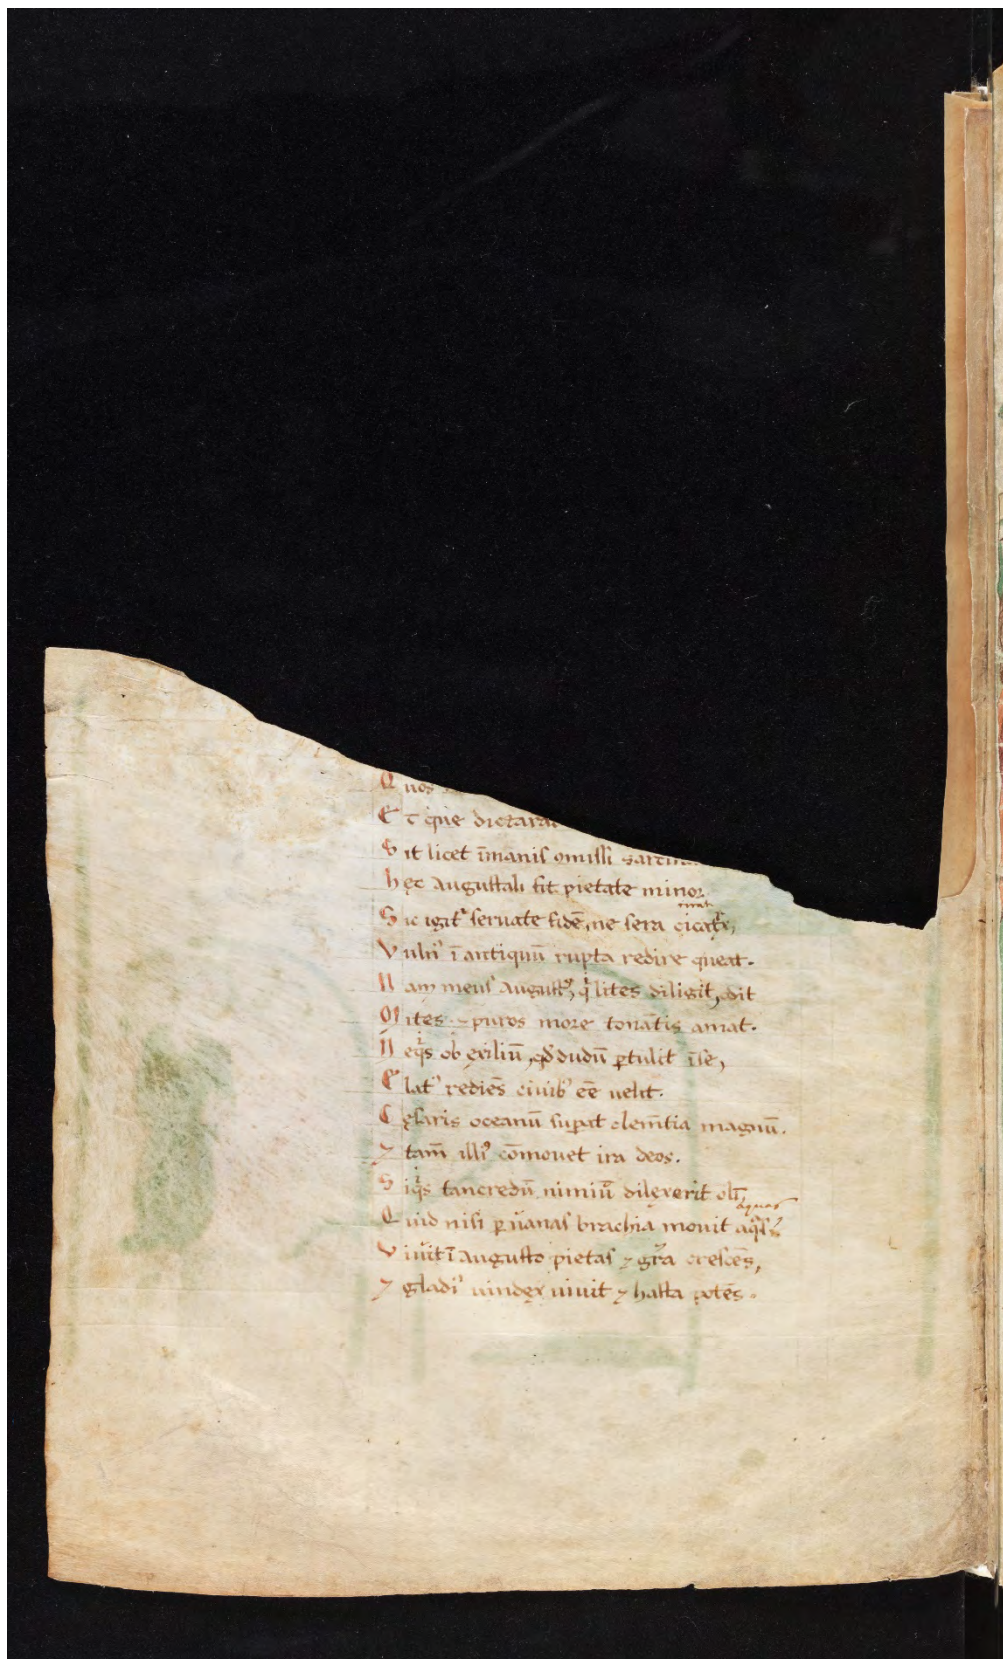 Quos
Et que dictarat
Sit licet īmanis omissi sarcina
hęc Augustali fit pietate minor.
Sic igit᷑ seruate fidē, ne sera cicat᷑x,
Vuln᷒ ī antiquū rupta redire queat.
Nam meus August᷒, q' lites diligit, odit
Mites ⁊ puros more tonātis amat.
Neq's ob exiliū, qđ dudū ꝑtulit īse,
Elat᷒ rediēs ciuib᷒ eē uelit.
Cęsaris oceanū suꝑat clem̄tia magnū.
⁊ tam̄ illi᷒ cōmouet ira deos.
Siq's tancredū nimiū dilexerit olī,
aquas
Quid nisi ꝑ uanas brachia mouit aq's?
Viuit ī Augusto pietas ⁊ gr̄a crescēs,
⁊ gladi᷒ uindex uiuit ⁊ hasta potēs.